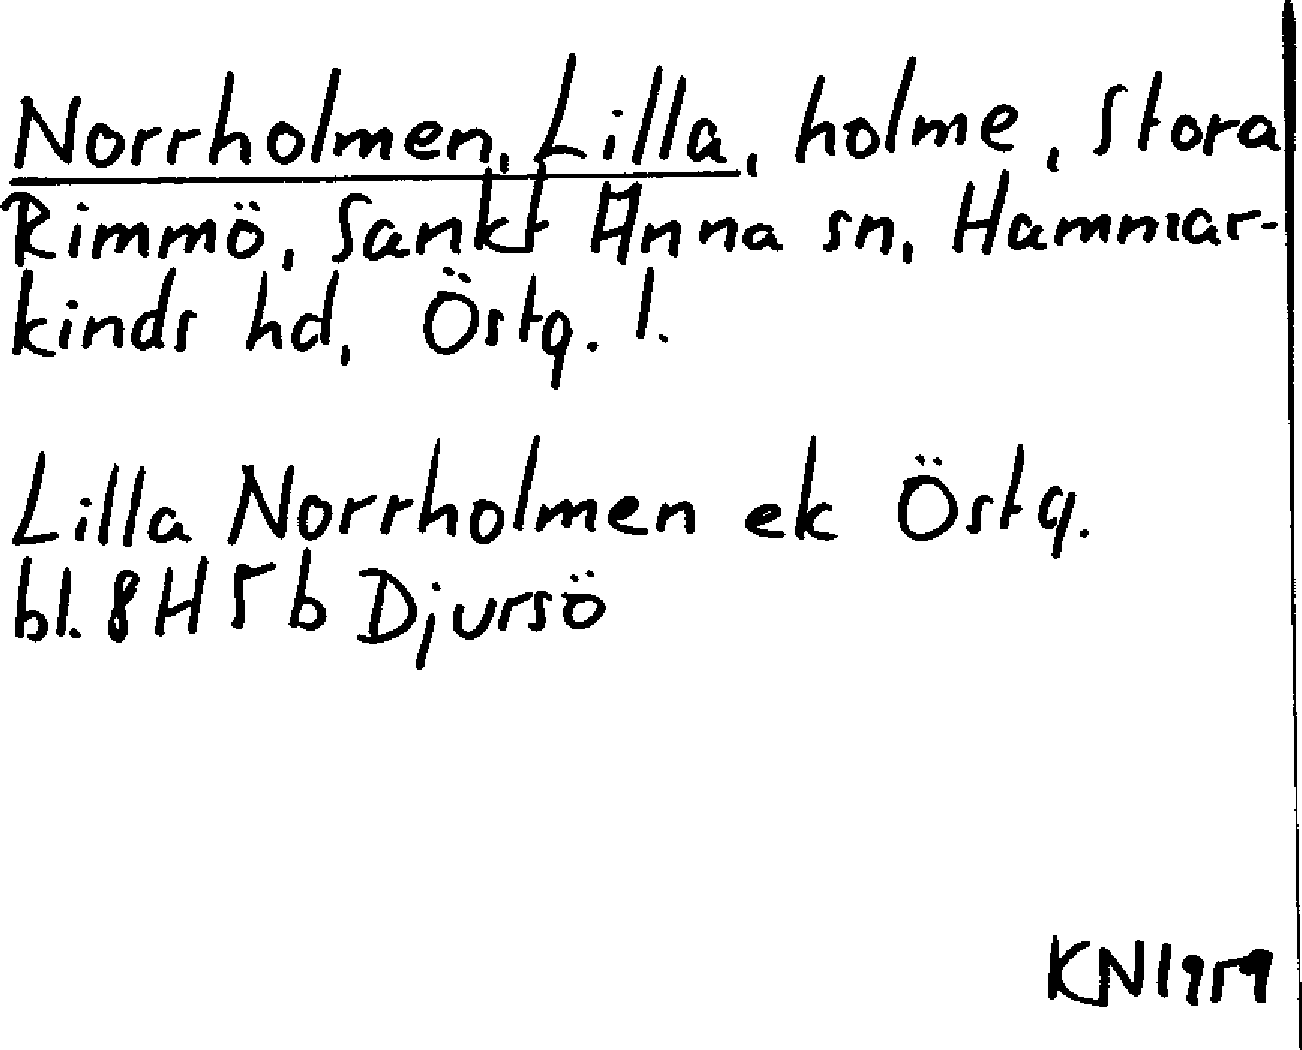 Norrholmen, Lilla, holme, Stora
Rimmö, Sankt Anna sn, Hammar-
kinds hd, Östg. l.
Lilla Norrholmen ek Östg.
bl. 8H5b Djursö
KN1959